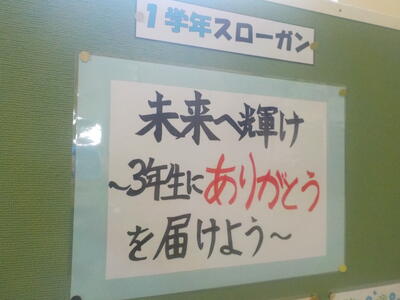 1学年スローガン
未来へ輝け
~3年生にありがとう
を届けよう~